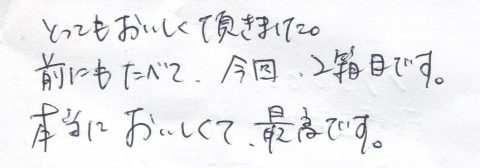 とってもおいしく頂きました。
前にもたべて、今回、2箱目です。
本当においしくて、最高です。